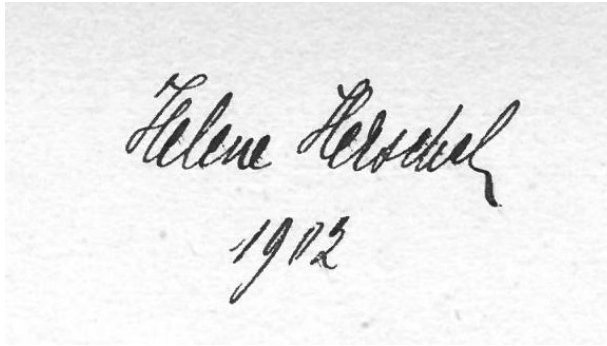 Helene Herschel
1902